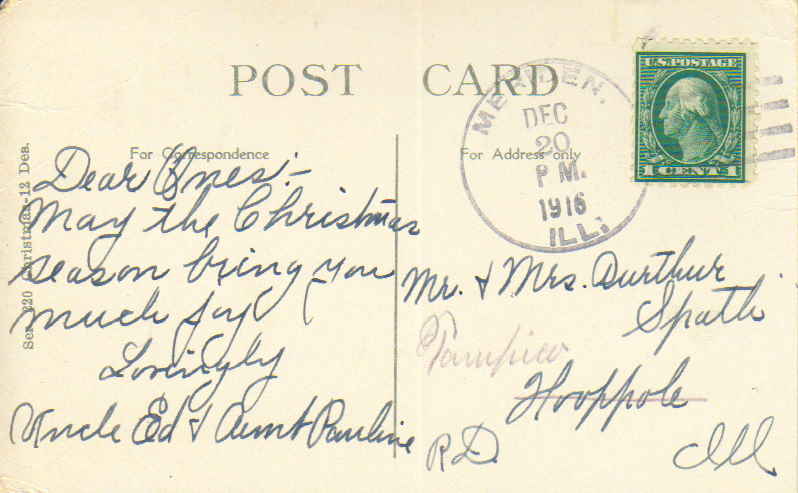 POST CARD
For Correspondence
For Address only
Ser. 220 Christmas-12 Des.
Dear Ones:-
May the Christmas
season bring you
much joy
Lovingly
Uncle Ed & Aunt Pauline
MERIDEN.
DEC
20
P M.
1916
ILL.
U.S. POSTAGE
1 CENT 1
Mr. & Mrs. Aurthur
Spath
Tampico
Hooppole
R.D. Ill